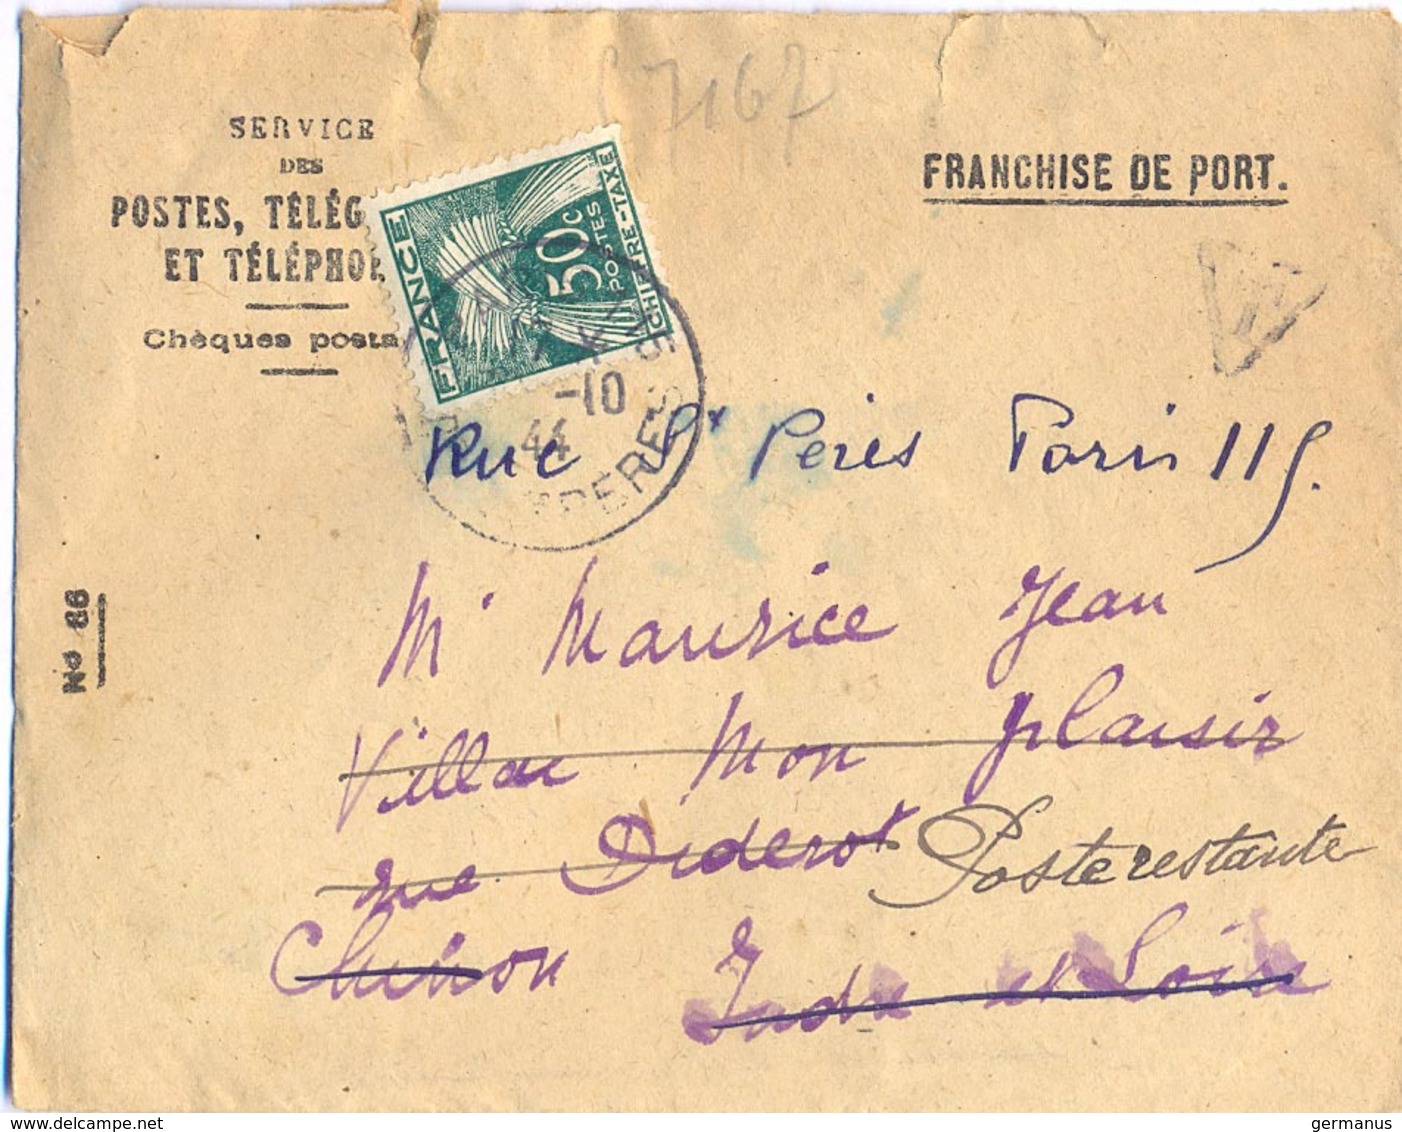 7167
SERVICE
DES
POSTES, TÉLÉG
ET TÉLÉPHO
Chèques posta
FRANCHISE DE PORT.
T
FRANCE
50c
POSTES
CHIFFRE-TAXE
-10
44
PERES
Rue Sts Pères Paris 115
No 86
Mr Maurice Jean
Villa Mon plaisir
rue Diderot Poste restante
Chinon Indre et Loire
germanus